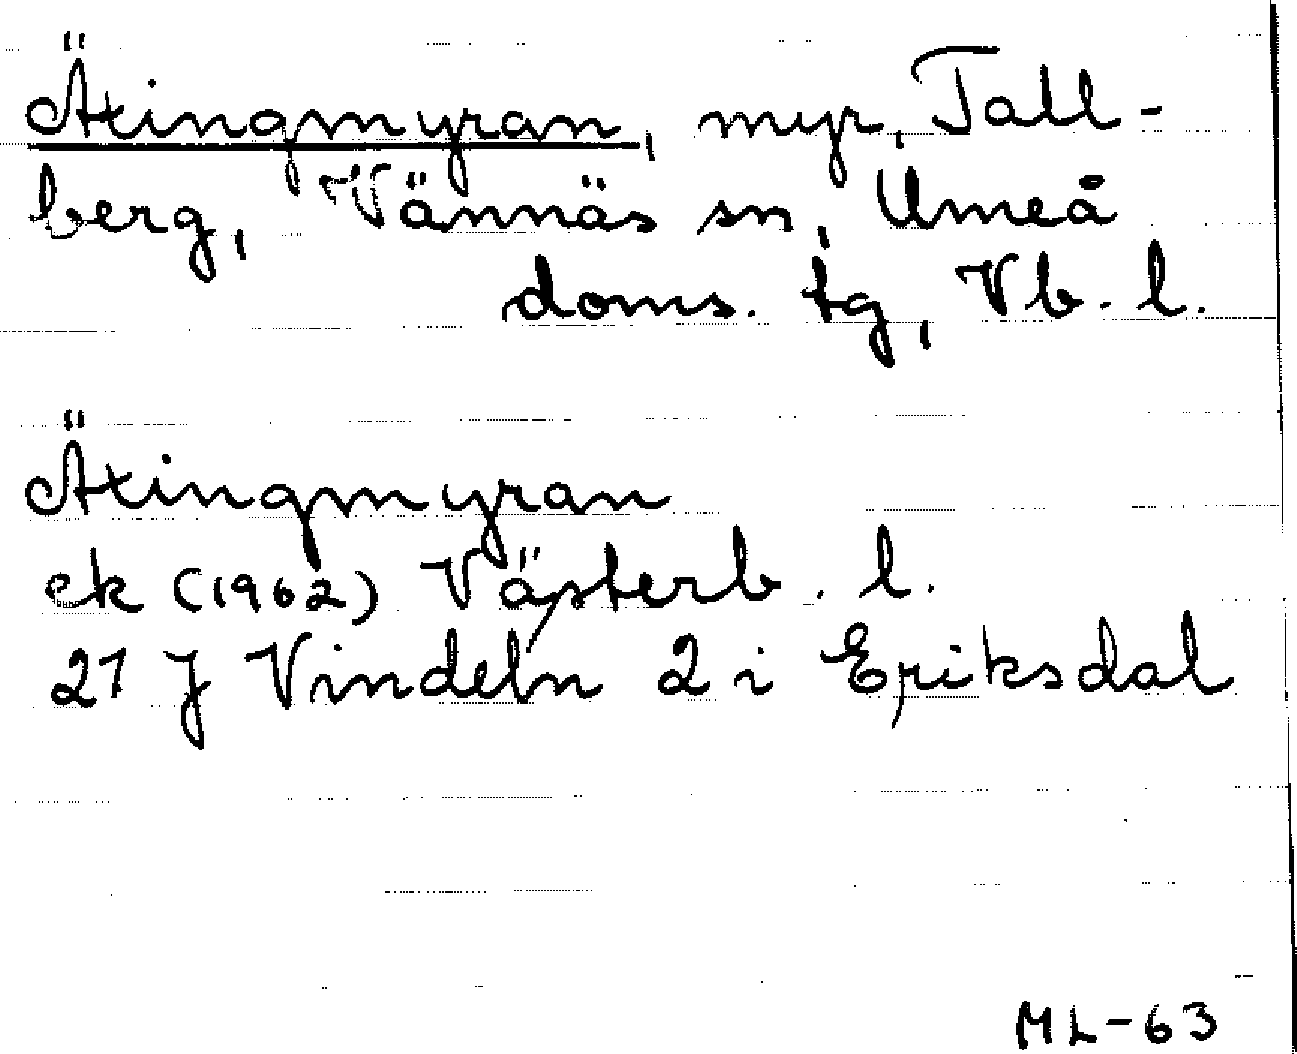 Ätingmyran, myr, Tall-
berg, Vännäs sn, Umeå
doms. tg, Vb. l.
Ätingmyran
ek (1962) Västerb. l.
21 J Vindeln 2 i Eriksdal
ML-63